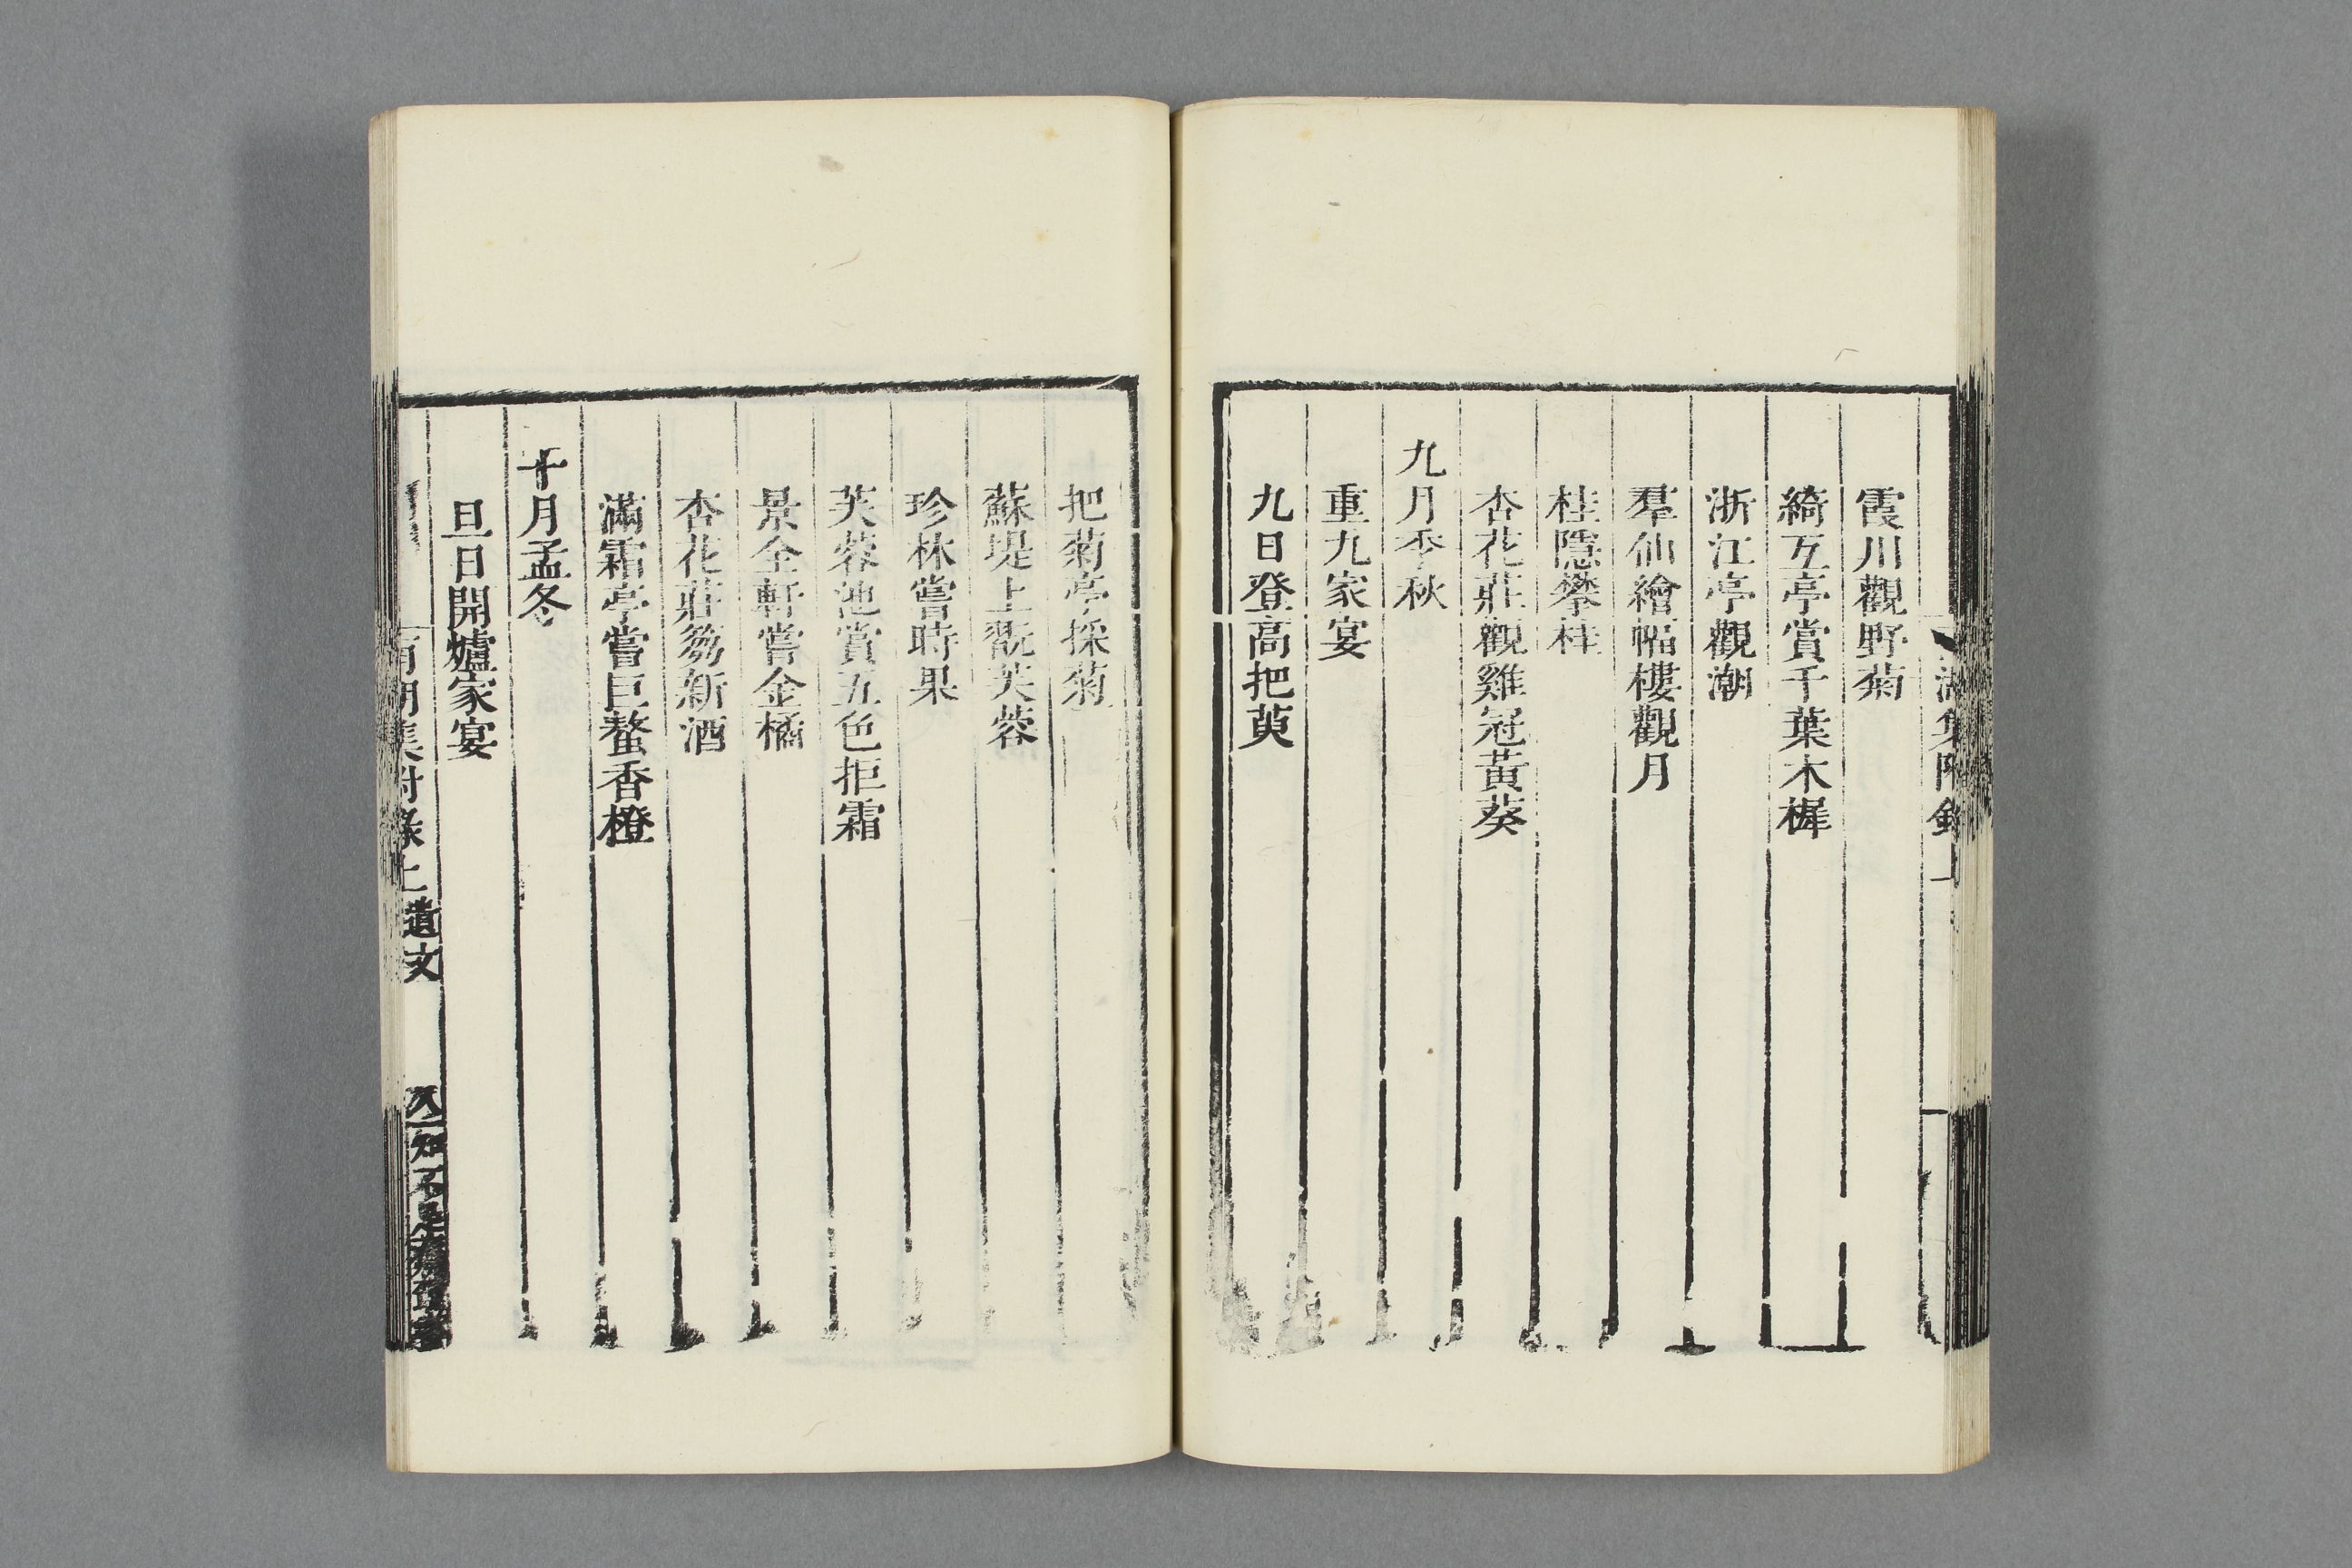 霞川觀野菊
綺互亭賞千葉木樨
浙江亭觀潮
羣仙繪幅樓觀月
桂隱攀桂
杏花莊觀雞冠黃葵
九月季秋
重九家宴
九日登高把萸
把菊亭採菊
蘇堤上翫芙蓉
珍林嘗時果
芙蓉池賞五色拒霜
景全軒嘗金橘
杏花莊篘新酒
滿霜亭嘗巨螯香橙
十月孟冬
旦日開爐家宴
南湖集附錄上 遺文
知不足齋叢書